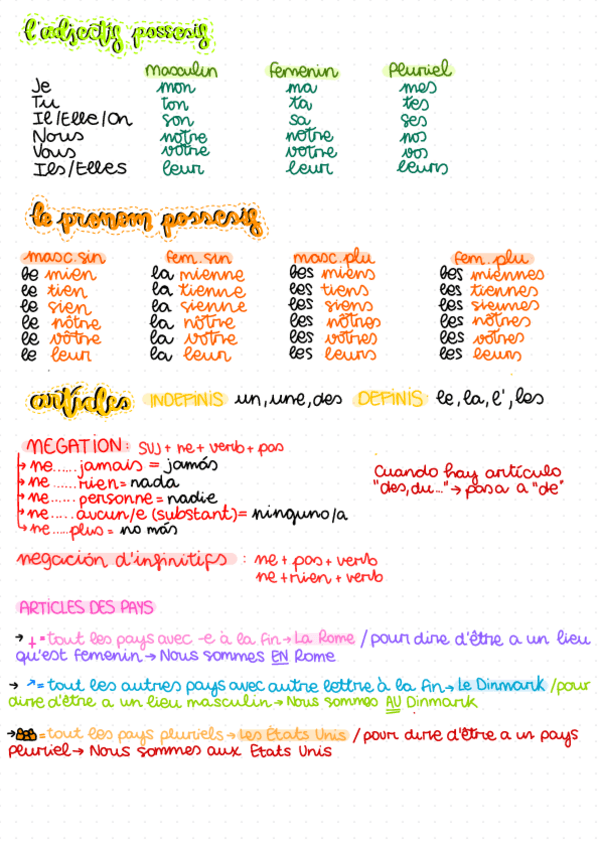 l'adjectif possesif
masculin femenin pluriel
Je mon ma mes
Tu ton ta tes
Il/Elle/On son sa ses
Nous nôtre nôtre nos
Vous vôtre vôtre vos
Ils/Elles leur leur leurs
le pronom possesif
masc.sin fem.sin masc.plu fem.plu
le mien la mienne les miens les miennes
le tien la tienne les tiens les tiennes
le sien la sienne les siens les siennes
le nôtre la nôtre les nôtres les nôtres
le vôtre la vôtre les vôtres les vôtres
le leur la leur les leurs les leurs
articles INDEFINIS un, une, des DEFINIS le, la, l', les
NEGATION: SUJ + ne + verb + pas
ne......jamais = jamás
ne......rien = nada
ne......personne = nadie
ne.....aucun/e (substant) = ninguno/a
ne.....plus = no más
Cuando hay artículo
"des, du..." → pasa a "de"
negación d'infinitifs : ne + pas + verb
ne + rien + verb
ARTICLES DES PAYS
→ + = tout les pays avec -e à la fin → La Rome / pour dire d'être a un lieu
qu'est femenin → Nous sommes EN Rome
→ ↗ = tout les autres pays avec autre lettre à la fin → Le Dinmark / pour
dire d'être a un lieu masculin → Nous sommes AU Dinmark
→ = tout les pays pluriels → Les États Unis / pour dire d'être a un pays
pluriel → Nous sommes aux Etats Unis